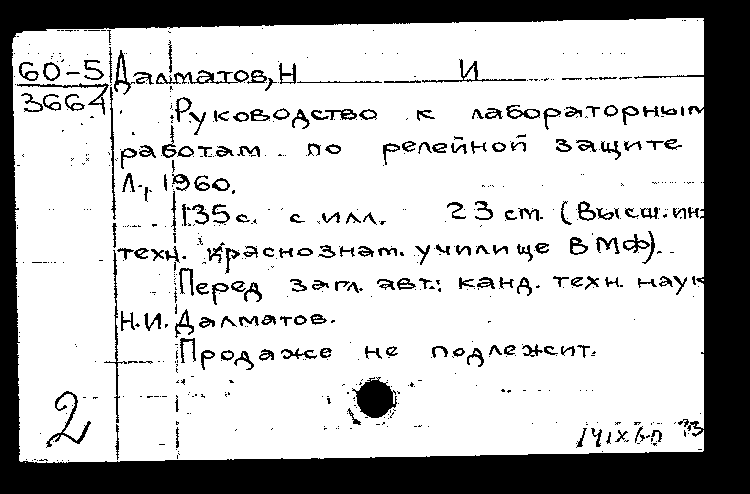 60-5 Далматов, Н И
3664
Руководство к лабораторным
работам по релейной защите
Л., 1960.
135 с. с илл. 23 cm. (Высш. ин.
техн. краснознам. училище ВМФ).
Перед загл. авт.: канд. техн. наук
Н.И. Далматов.
Продаже не подлежит.
2